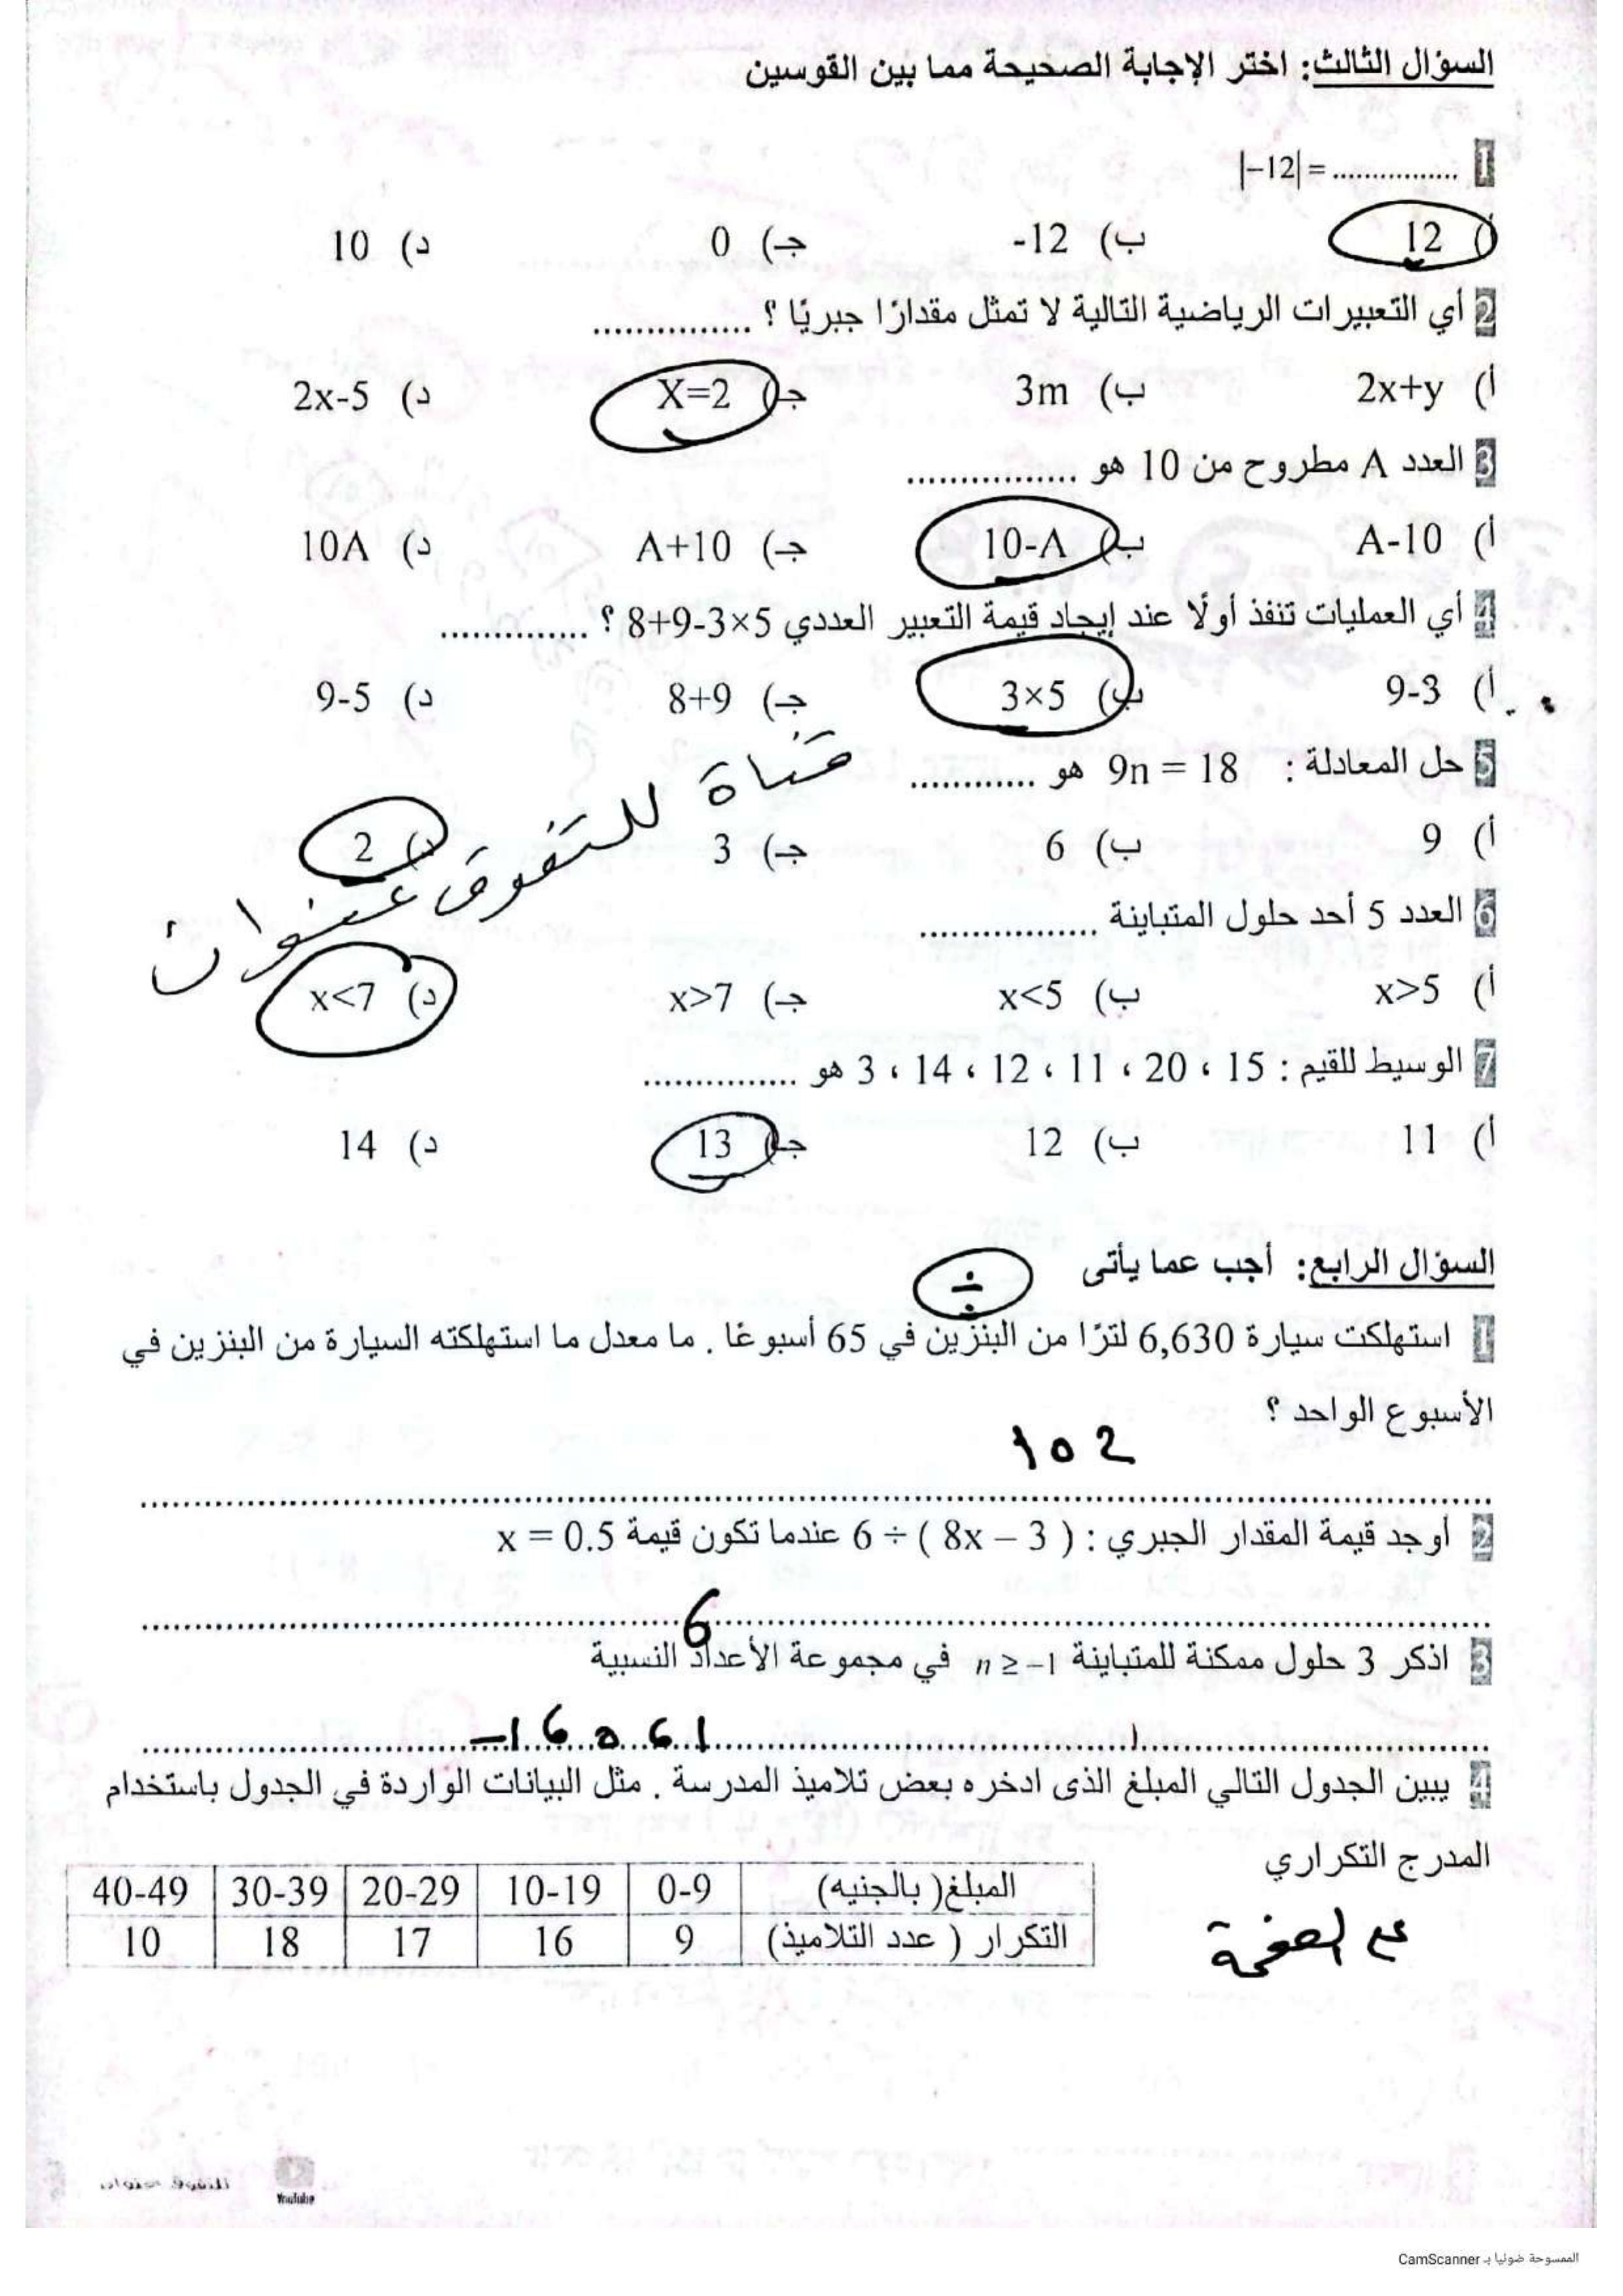 السؤال الثالث: اختر الإجابة الصحيحة مما بين القوسين
1 |−12| = ................
أ) 12 ب) -12 جـ) 0 د) 10
2 أي التعبيرات الرياضية التالية لا تمثل مقدارًا جبريًا ؟ ...............
أ) 2x+y ب) 3m جـ) X=2 د) 2x-5
3 العدد A مطروح من 10 هو ................
أ) A-10 ب) 10-A جـ) A+10 د) 10A
4 أي العمليات تنفذ أولًا عند إيجاد قيمة التعبير العددي 8+9-3×5 ؟ ..............
أ) 9-3 ب) 3×5 جـ) 8+9 د) 9-5
5 حل المعادلة : 9n = 18 هو ............
أ) 9 ب) 6 جـ) 3 د) 2
قناة للتفوق عنوان
6 العدد 5 أحد حلول المتباينة ................
أ) x>5 ب) x<5 جـ) x>7 د) x<7
7 الوسيط للقيم : 15 ، 20 ، 11 ، 12 ، 14 ، 3 هو ...............
أ) 11 ب) 12 جـ) 13 د) 14
السؤال الرابع: أجب عما يأتى
÷
1 استهلكت سيارة 6,630 لترًا من البنزين في 65 أسبوعًا . ما معدل ما استهلكته السيارة من البنزين في
الأسبوع الواحد ؟
102
2 أوجد قيمة المقدار الجبري : ( 8x − 3 ) ÷ 6 عندما تكون قيمة x = 0.5
6
3 اذكر 3 حلول ممكنة للمتباينة n ≥ −1 في مجموعة الأعداد النسبية
−1 ، 0 ، 1
4 يبين الجدول التالي المبلغ الذى ادخره بعض تلاميذ المدرسة . مثل البيانات الواردة في الجدول باستخدام
المدرج التكراري
المبلغ( بالجنيه) 0-9 10-19 20-29 30-39 40-49
التكرار ( عدد التلاميذ) 9 16 17 18 10
ع الصفحة
YouTube
الممسوحة ضوئيا بـ CamScanner